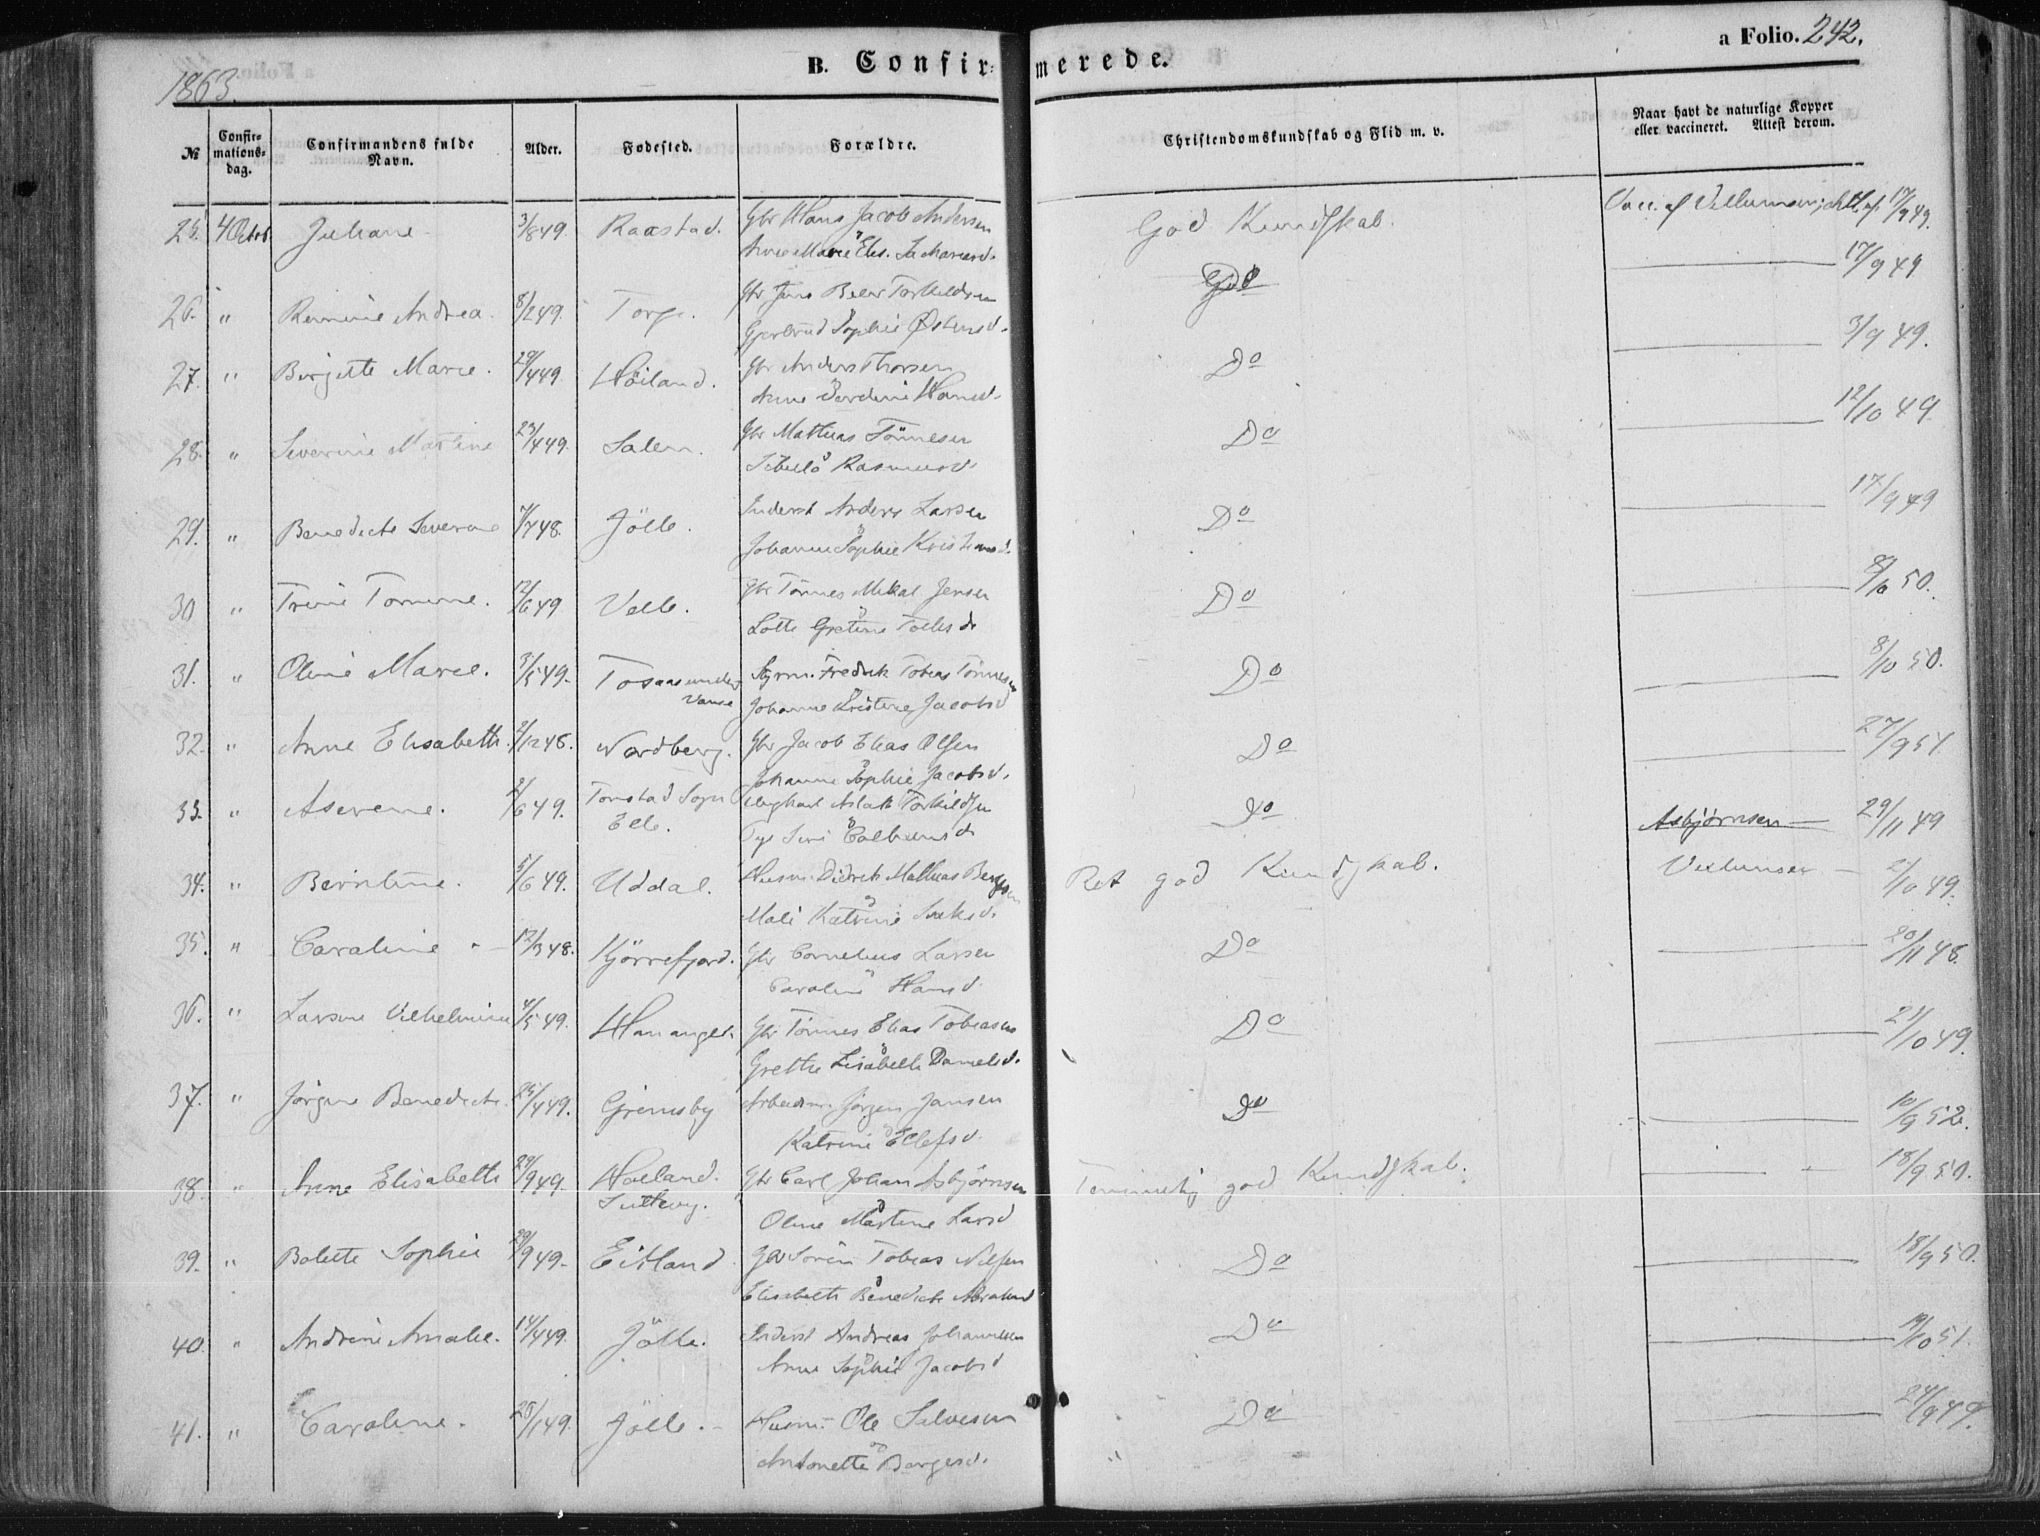 1863.
B. Confirmerede.
a Folio. 242.
№
Confirmationsdag.
Confirmandens fulde Navn.
Alder.
Fødested.
Forældre.
Christendomskundskab og Flid m. v.
Naar havt de naturlige Kopper eller vaccineret. Attest derom.
25. 4 Octob. Juliane 3/8 49. Raastad. Gbr Hans Jacob Andersen God Kundskab. Vacc. af 17/9 49.
Anne Marie Elis.
26. " Andrea. 8/2 49. Torp. Gbr Jens Beer Torkildsen Do 17/9 49
Gjertrud Sophie Østensd.
27. " Birgitte Marie. 29/4 49. Höiland. Gbr Anders Thorsen Do 3/9 49.
Anne Hansd.
28. " Severine Martine 23/4 49. Salen. Gbr Mathias Tönnesen Do 12/10 49.
Sibille Rasmusd.
29. " Benedicte Severine 7/7 48. Jölle. Inderst Anders Larsen Do 17/9 49
Johanne Sophie Kristensd.
30 " Trine Tomine. 12/6 49. Velle. Gbr Tönnes Mikal Jensen Do 8/10 50.
Lotte Gretine
31. " Oline Marie. 3/5 49. Tosaasen under Vanse Styrm. Fredrik Tobias Tönnesen Do 8/10 50.
Johanne Kristine Jacobsd
32. " Anne Elisabeth. 2/12 48. Nordberg. Gbr Jacob Elias Olsen Do 27/9 51.
Johanne Sophie Jacobsd.
33. " Aserene. 2/6 49. Tonstad Sogn Ungkarl Aslak Torkildsen Do Asbjørnsen — 29/11 49
Pige Siri
34. " Berntine. 5/6 49. Uddal. Husm. Didrik Mathias Ret god Kundskab. Villumsen — 2/10 49.
Mali Katrine
35. " Caroline 12/3 48. Kjörrefjord. Gbr Cornelius Larsen Do 20/11 48.
Caroline Hansd.
36. " Larsine Vilhelmine 4/5 49. Hananger. Gbr Tönnes Elias Tobiasen Do 21/10 49.
Grethe Lisabeth Danielsd.
37. " Jörgine Benedicte. 25/4 49. Grimsby Arbeidsm. Jörgen Jansen Do 10/9 52.
Katrine Ellefsd.
38. " Anne Elisabeth 29/9 49. Höiland. Gbr Carl Johan Asbjörnsen Temmelig god Kundskab. 18/9 50.
Oline Martine Larsd
39. " Bolette Sophie 29/9 49. Eitland Gbr Sören Tobias Nilsen Do 18/9 50.
Elisabeth Benedicte Abrahamsd
40. " Andrine Amalie. 14/4 49. Jölle. Inderst Andreas Johannesen Do 19/10 51.
Anne Sophie Jacobsd
41. " Caroline. 28/1 49. Jölle. Husm. Ole Salvesen Do 24/9 49.
Antonette Borgesd.